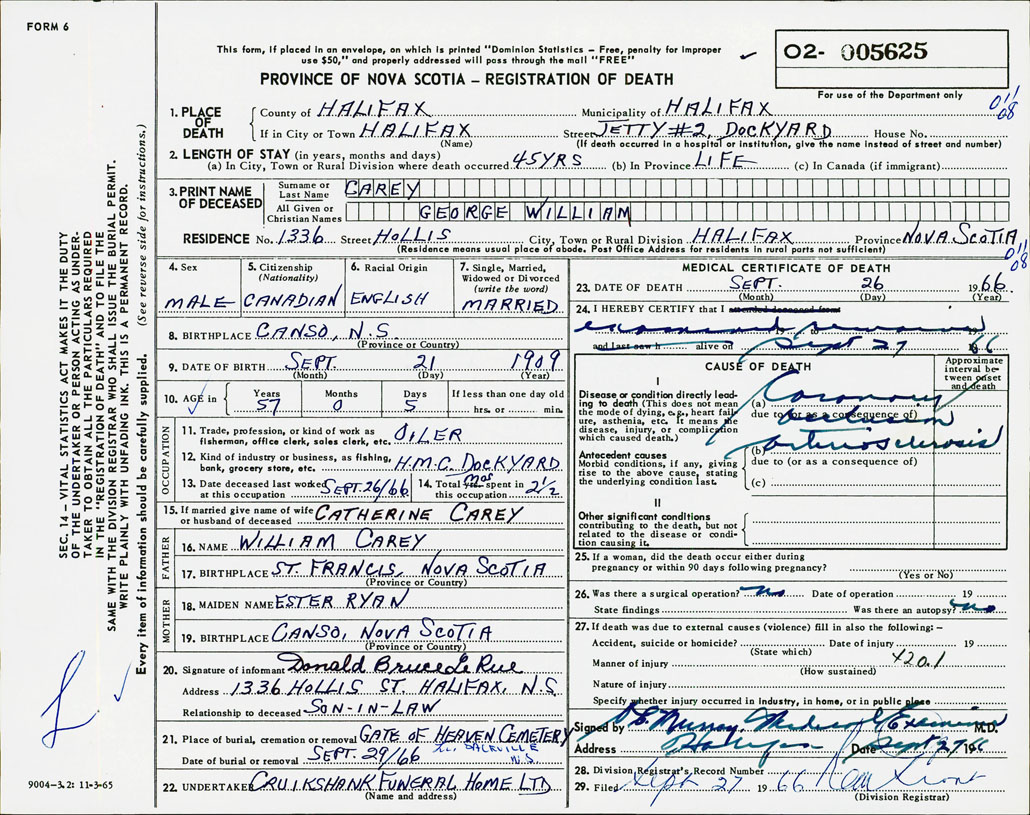 FORM 6
This form, if placed in an envelope, on which is printed "Dominion Statistics – Free, penalty for improper
use $50," and properly addressed will pass through the mail "FREE"
PROVINCE OF NOVA SCOTIA – REGISTRATION OF DEATH
O2- 005625
For use of the Department only
011
08
1. PLACE OF DEATH
County of HALIFAX Municipality of HALIFAX
If in City or Town HALIFAX Street JETTY #2, DOCKYARD House No.
(Name) (If death occurred in a hospital or institution, give the name instead of street and number)
2. LENGTH OF STAY (in years, months and days)
(a) In City, Town or Rural Division where death occurred 45 YRS (b) In Province LIFE (c) In Canada (if immigrant)
3. PRINT NAME OF DECEASED
Surname or Last Name CAREY
All Given or Christian Names GEORGE WILLIAM
RESIDENCE No. 1336 Street HOLLIS City, Town or Rural Division HALIFAX Province NOVA SCOTIA
(Residence means usual place of abode. Post Office Address for residents in rural parts not sufficient)
011
08
4. Sex
MALE
5. Citizenship
(Nationality)
CANADIAN
6. Racial Origin
ENGLISH
7. Single, Married,
Widowed or Divorced
(write the word)
MARRIED
8. BIRTHPLACE CANSO, N.S.
(Province or Country)
9. DATE OF BIRTH SEPT. 21 1909
(Month) (Day) (Year)
10. AGE in
Years Months Days If less than one day old
57 0 5 hrs. or min.
OCCUPATION
11. Trade, profession, or kind of work as
fisherman, office clerk, sales clerk, etc. OILER
12. Kind of industry or business, as fishing,
bank, grocery store, etc. H.M.C. DOCKYARD
13. Date deceased last worked
at this occupation SEPT. 26/66
14. Total mos spent in
this occupation 2 1/2
15. If married give name of wife
or husband of deceased CATHERINE CAREY
FATHER
16. NAME WILLIAM CAREY
17. BIRTHPLACE ST. FRANCIS, NOVA SCOTIA
(Province or Country)
MOTHER
18. MAIDEN NAME ESTER RYAN
19. BIRTHPLACE CANSO, NOVA SCOTIA
(Province or Country)
20. Signature of informant Donald Bruce LeRue
Address 1336 HOLLIS ST. HALIFAX, N.S.
Relationship to deceased SON-IN-LAW
21. Place of burial, cremation or removal GATE OF HEAVEN CEMETERY
SACKVILLE
N.S.
Date of burial or removal SEPT. 29/66
22. UNDERTAKER CRUIKSHANK FUNERAL HOME LTD
(Name and address)
MEDICAL CERTIFICATE OF DEATH
23. DATE OF DEATH SEPT. 26 1966.
(Month) (Day) (Year)
24. I HEREBY CERTIFY that I attended deceased from
examined
and last saw h alive on Sept 27 66
CAUSE OF DEATH
Approximate
interval be-
tween onset
and death
I
Disease or condition directly lead-
ing to death (This does not mean
the mode of dying, e.g., heart fail-
ure, asthenia, etc. It means the
disease, injury, or complication
which caused death.)
(a) Coronary
due to (or as a consequence of)
occlusion
Antecedent causes
Morbid conditions, if any, giving
rise to the above cause, stating
the underlying condition last.
(b) arteriosclerosis
due to (or as a consequence of)
(c)
II
Other significant conditions
contributing to the death, but not
related to the disease or condi-
tion causing it.
25. If a woman, did the death occur either during
pregnancy or within 90 days following pregnancy?
(Yes or No)
26. Was there a surgical operation? no Date of operation 19
State findings Was there an autopsy? no
27. If death was due to external causes (violence) fill in also the following: –
Accident, suicide or homicide? Date of injury 19
(State which)
Manner of injury 420.1
(How sustained)
Nature of injury
Specify whether injury occurred in industry, in home, or in public place
Signed by Murray, Medical Examiner M.D.
Address Halifax Date Sept 27 1966
28. Division Registrar's Record Number
29. Filed Sept 27 1966
(Division Registrar)
SEC. 14 – VITAL STATISTICS ACT MAKES IT THE DUTY
OF THE UNDERTAKER OR PERSON ACTING AS UNDER-
TAKER TO OBTAIN ALL THE PARTICULARS REQUIRED
IN THE "REGISTRATION OF DEATH" AND TO FILE THE
SAME WITH THE DIVISION REGISTRAR WHO SHALL ISSUE THE BURIAL PERMIT.
WRITE PLAINLY WITH UNFADING INK. THIS IS A PERMANENT RECORD.
Every item of information should be carefully supplied. (See reverse side for instructions.)
9004–3.2: 11-3-65